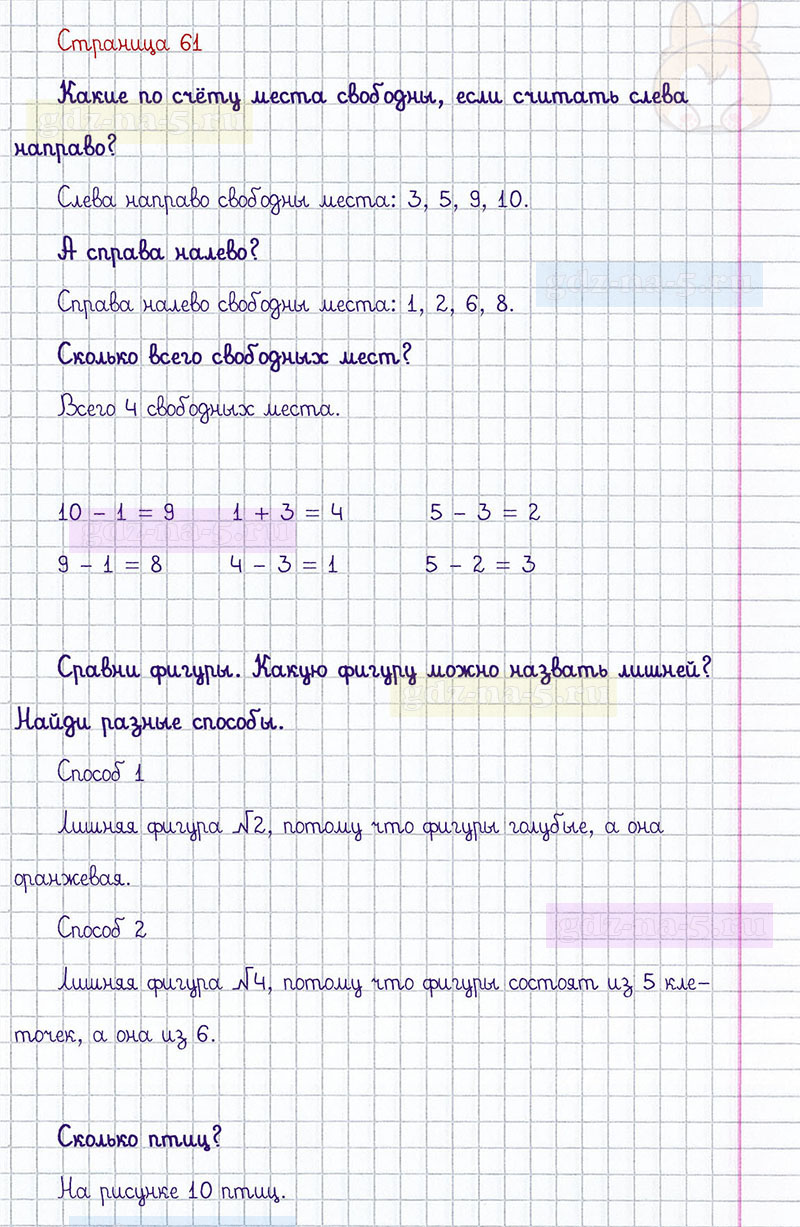 Страница 61
Какие по счёту места свободны, если считать слева
gdz-na-5.ru
направо?
Слева направо свободны места: 3, 5, 9, 10.
А справа налево?
gdz-na-5.ru
Справа налево свободны места: 1, 2, 6, 8.
Сколько всего свободных мест?
Всего 4 свободных места.
10 - 1 = 9 1 + 3 = 4 5 - 3 = 2
gdz-na-5.ru
9 - 1 = 8 4 - 3 = 1 5 - 2 = 3
Сравни фигуры. Какую фигуру можно назвать лишней?
gdz-na-5.ru
Найди разные способы.
Способ 1
Лишняя фигура №2, потому что фигуры голубые, а она
оранжевая.
Способ 2
gdz-na-5.ru
Лишняя фигура №4, потому что фигуры состоят из 5 кле-
точек, а она из 6.
Сколько птиц?
На рисунке 10 птиц.